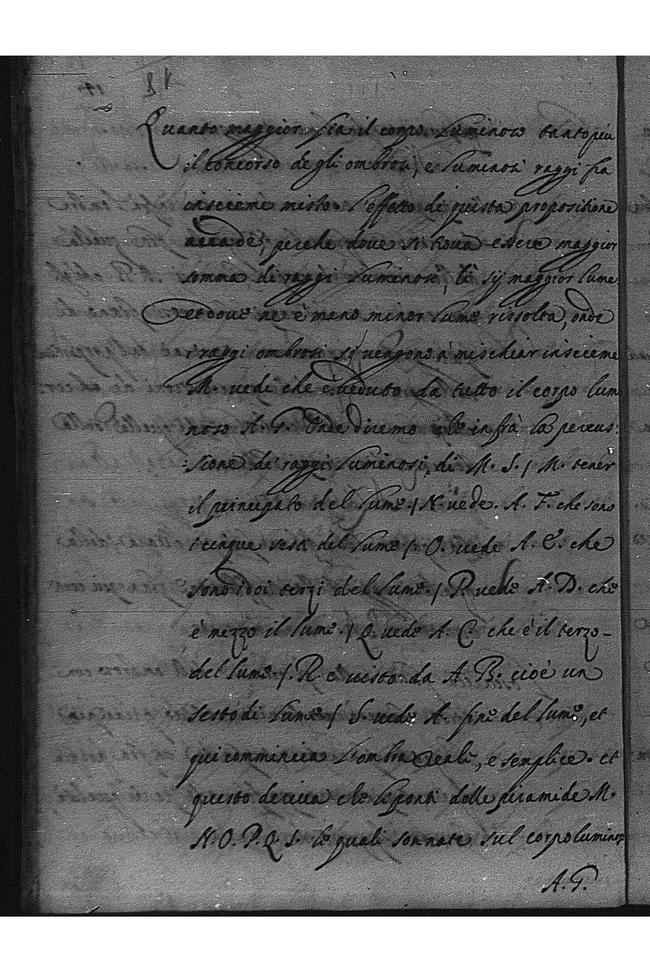 18
Quanto maggior sia il corpo luminoso tanto piu
il concorso degli ombrosi, e luminosi raggi fia
insieme misto. L'effetto di questa propositione
accade, perche dove si trova essere maggior
somma di raggi luminosi, li sij maggior lume
et dove ne è meno minor lume rissolta, onde
i raggi ombrosi si vengono a' mischiar insieme
M. vedi che è veduto da tutto il corpo lum
noso A. G. Onde diremo che infrà la percus:
sione de' raggi luminosi, di M. S. / M. tener
il principato del lume / N. vede. A. F. che sono
i cinque sesti del lume /. O. vede A. E. che
sono i doi terzi del lume. / P. vede A. D. che
è mezzo il lume. / Q. vede A. C. che è il terzo
del lume /. R. è visto da A. B. cioè un
sesto di lume / S. vede A. fine del lume, et
qui commincia l'ombra reale, e semplice. et
questo deriva che le ponti delle piramide M.
N. O. P. Q. S. le quali son nate sul corpo luminos
A. G.